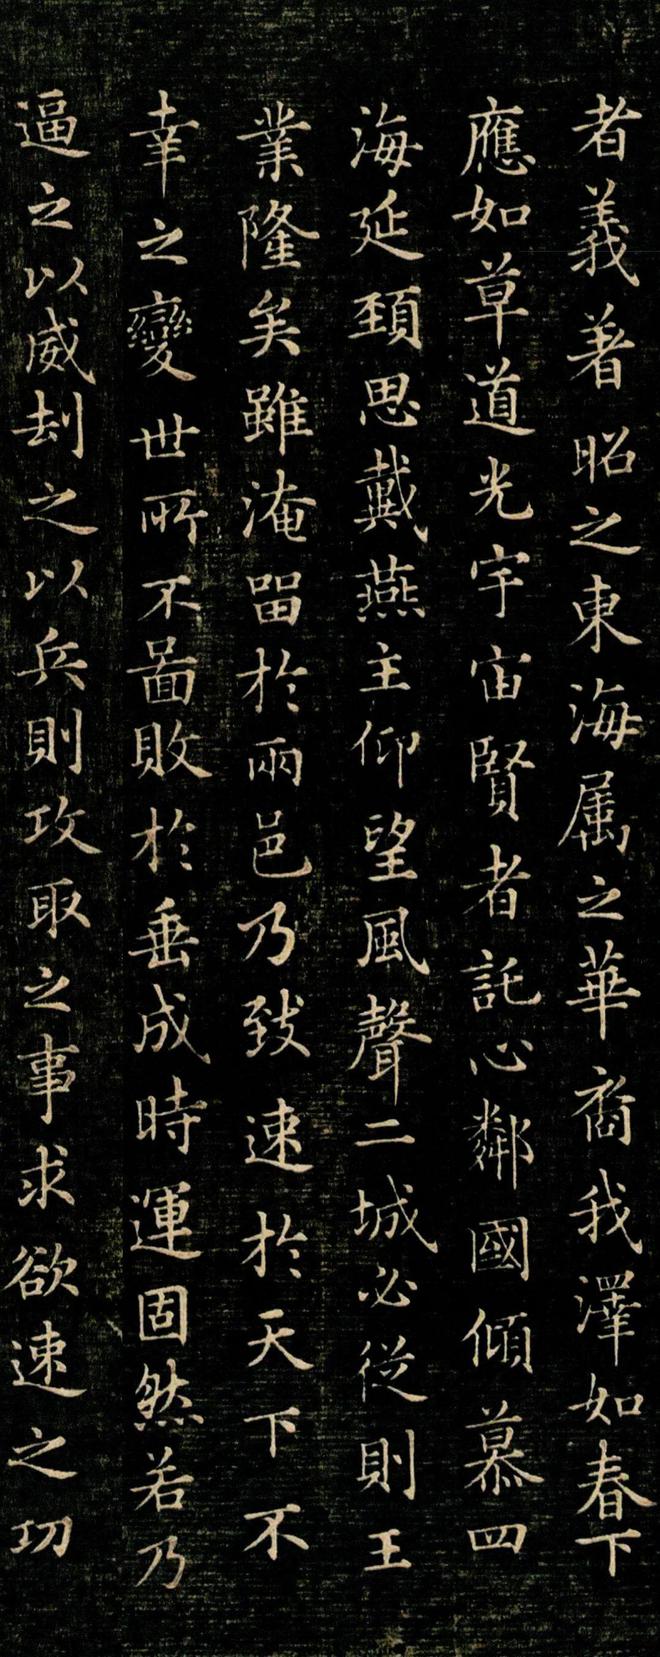 者義著昭之東海属之華裔我澤如春下
應如草道光宇宙賢者託心鄰國傾慕四
海延頚思戴燕主仰望風聲二城必從則王
業隆矣雖淹留於兩邑乃致速於天下不
幸之變世所不啚敗於垂成時運固然若乃
逼之以威刦之以兵則攻取之事求欲速之功